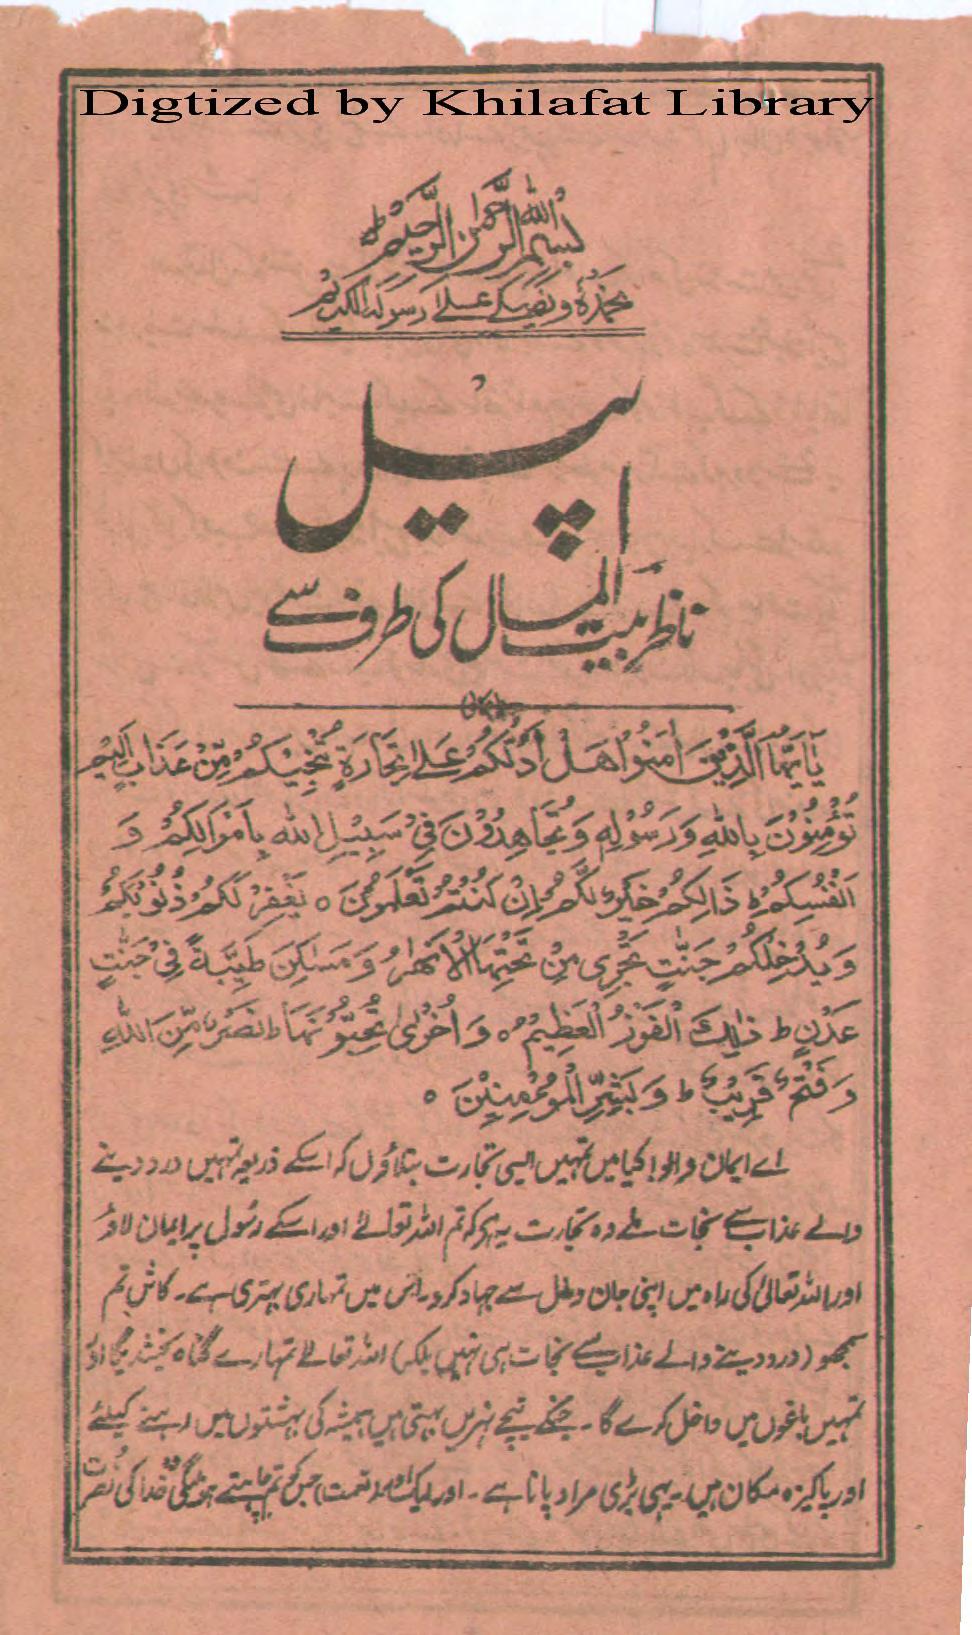 Digtized by Khilafat Library
بسم الله الرحمن الرحیم ط
نحمدہٗ و نصلے علےٰ رسولہ الکریم
اپیل
ناظر بیت المال کی طرف سے
یٰاَیُّہَا الَّذِیْنَ اٰمَنُوْا ہَلْ اَدُلُّکُمْ عَلےٰ تِجَارَۃٍ تُنْجِیْکُمْ مِّنْ عَذَابٍ اَلِیْمٍ
تُؤْمِنُوْنَ بِاللّٰہِ وَ رَسُوْلِہٖ وَ تُجَاہِدُوْنَ فِیْ سَبِیْلِ اللّٰہِ بِاَمْوَالِکُمْ وَ
اَنْفُسِکُمْ ط ذَالِکُمْ خَیْرٌ لَّکُمْ اِنْ کُنْتُمْ تَعْلَمُوْنَ ○ یَغْفِرْ لَکُمْ ذُنُوْبَکُمْ
وَ یُدْخِلْکُمْ جَنّٰتٍ تَجْرِی مِنْ تَحْتِہَا الْاَنْھٰرُ وَ مَسَاکِنَ طَیِّبَۃً فِیْ جَنّٰتِ
عَدْنٍ ط ذٰلِکَ الْفَوْزُ الْعَظِیْمُ ○ وَ اُخْرٰی تُحِبُّوْنَہَا ط نَصْرٌ مِّنَ اللّٰہِ
وَ فَتْحٌ قَرِیْبٌ ط وَ بَشِّرِ الْمُؤْمِنِیْنَ ○
اے ایمان والو! کیا میں تمہیں ایسی تجارت بتلاؤں کہ اسکے ذریعہ تمہیں درد دینے
والے عذاب سے نجات ملے وہ تجارت یہ ہے کہ تم اللہ تعالےٰ اور اسکے رسول پر ایمان لاؤ
اور اللہ تعالیٰ کی راہ میں اپنی جان و مال سے جہاد کرو۔ اس میں تمہاری بہتری ہے۔ کاش تم
سمجھو (درد دینے والے عذاب سے نجات ہی نہیں بلکہ) اللہ تعالےٰ تمہارے گناہ بخشدیگا اور
تمہیں باغوں میں داخل کرے گا۔ جنکے نیچے نہریں بہتی ہیں ہمیشہ کی بہشتوں میں رہنے کیلئے
اور پاکیزہ مکان ہیں۔ یہی بڑی مراد پانا ہے۔ اور ایک اور نعمت جس کو تم چاہتے ہو خدا کی نصرت